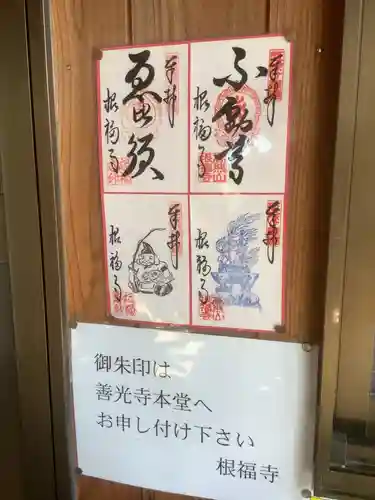 奉拝
不動尊
根福寺
奉拝
恵比須
根福寺
奉拝
根福寺
奉拝
根福寺
御朱印は
善光寺本堂へ
お申し付け下さい
根福寺